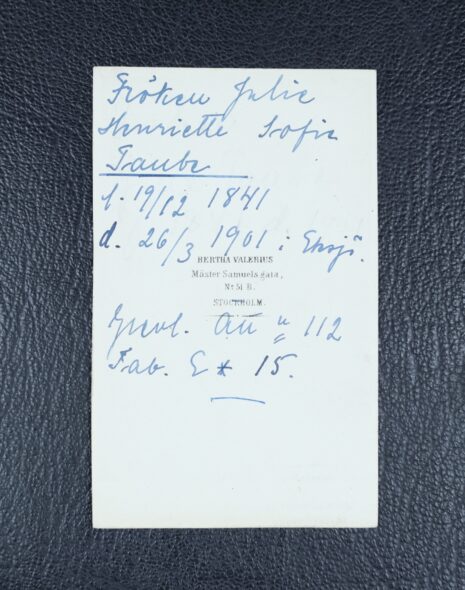 Fröken Julie
Henriette Sofie
Taube
f. 19/12 1841
d. 26/3 1901 i Eksjö.
BERTHA VALERIUS
Mäster Samuels gata,
No 51 B.
STOCKHOLM.
112
Tab. E * 15.